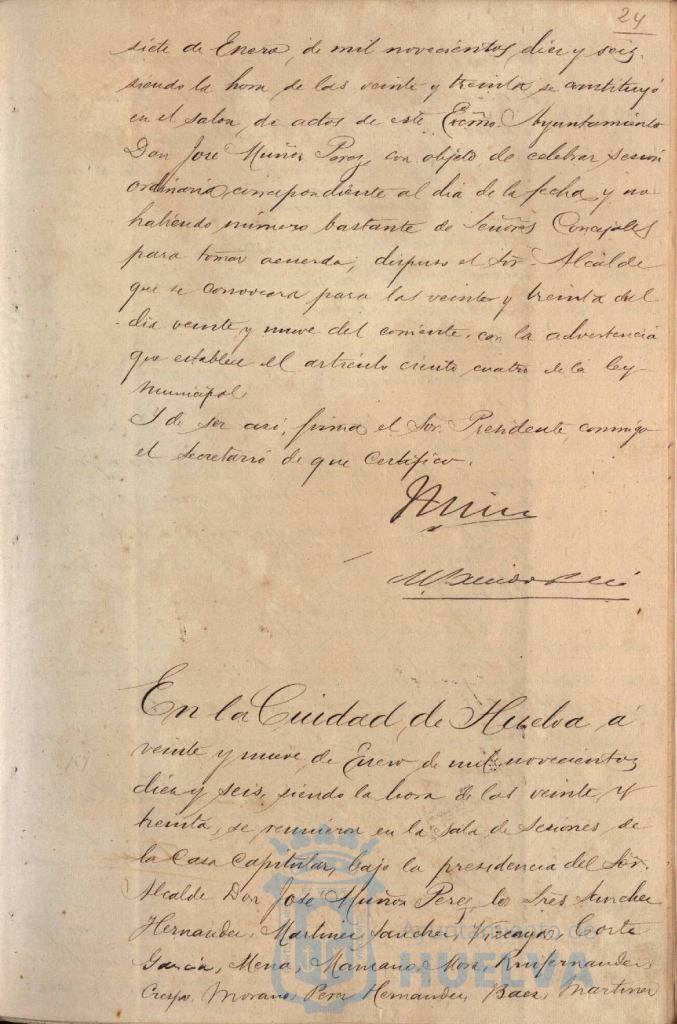 24
siete de Enero, de mil novecientos diez y seis,
siendo la hora de las veinte y treinta se constituyó
en el salon de actos de este Excmo. Ayuntamiento
Don José Muñoz Perez, con objeto de celebrar sesion
ordinaria correspondiente al dia de la fecha y no
habiendo número bastante de Señores Concejales
para tomar acuerdo, dispuso el Sor. Alcalde
que se convocara para las veinte y treinta del
dia veinte y nueve del corriente, con la advertencia
que establece el articulo ciento cuatro de la ley
Municipal.
Y de ser asi, firma el Sor. Presidente conmigo
el secretario de que Certifico.
En la Ciudad de Huelva á
veinte y nueve de Enero de mil novecientos
diez y seis, siendo la hora de las veinte y
treinta, se reunieron en la sala de Sesiones de
la Casa Capitular, bajo la presidencia del Sor.
Alcalde Don José Muñoz Perez, los Sres Sanchez
Hernandez, Martinez Sanchez, Vizcaya, Corte
Garcia, Mena, Manzano, Mora,
Crespo, Morano, Perez Hernandez, Baez, Martinez
Ayuntamiento de
HUELVA